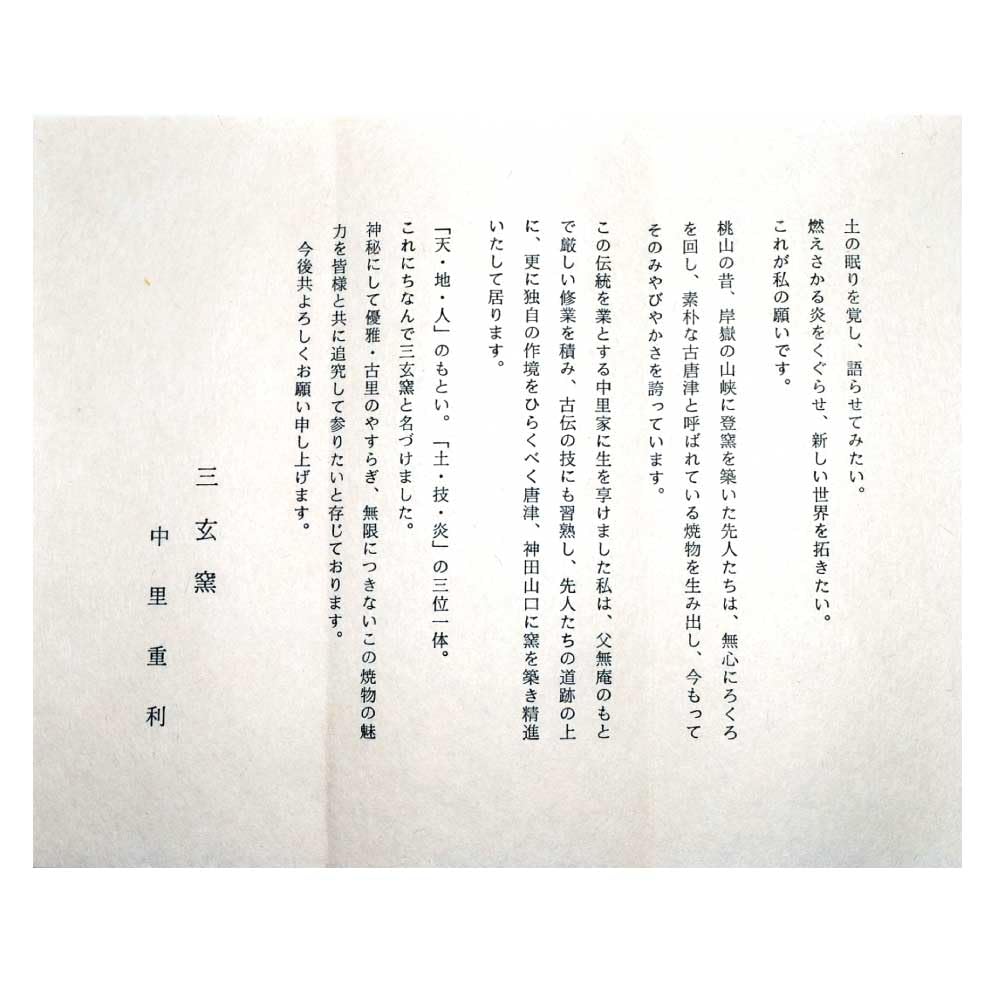 土の眠りを覚し、語らせてみたい。
燃えさかる炎をくぐらせ、新しい世界を拓きたい。
これが私の願いです。
桃山の昔、岸嶽の山峡に登窯を築いた先人たちは、無心にろくろ
を回し、素朴な古唐津と呼ばれている焼物を生み出し、今もって
そのみやびやかさを誇っています。
この伝統を業とする中里家に生を享けました私は、父無庵のもと
で厳しい修業を積み、古伝の技にも習熟し、先人たちの道跡の上
に、更に独自の作境をひらくべく唐津、神田山口に窯を築き精進
いたして居ります。
「天・地・人」のもとい。「土・技・炎」の三位一体。
これにちなんで三玄窯と名づけました。
神秘にして優雅・古里のやすらぎ、無限につきないこの焼物の魅
力を皆様と共に追究して参りたいと存じております。
今後共よろしくお願い申し上げます。
三玄窯
中里重利